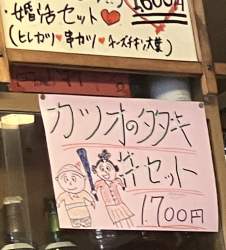 ・婚活セット♥ 1,600円
(ヒレカツ・串カツ・チーズチキン大葉)
カツオのタタキ
セット
1,700円